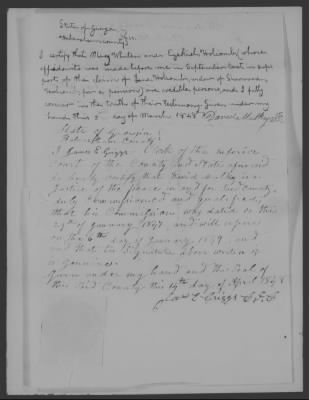 State of Georgia
Habersham County
I certify that Mary Whitten and Ezekiel Holcomb whose
affidavits was made before me in September last in sup
port of the claim of Jane Holcomb, widow of Sherwood
Holcomb for a pension are credible persons and I fully
concur in the truth of their testimony Given under my
hand this 2 day of March 1848
State of Georgia
Habersham County
I James C Griggs Clerk of the inferior
Court of the County and State aforesaid
do hereby certify that David
Justice of the peace in and for said County
duly Commissioned and qualified,
that his Commission was dated on the
29th of January 1847, and will expire
on the 6th day of January 1849, and
that his Signature above written is
is genuine.
Given under my hand and the Seal of
the Said County this 14th day of April 1848
Jas C Griggs C.I.C.